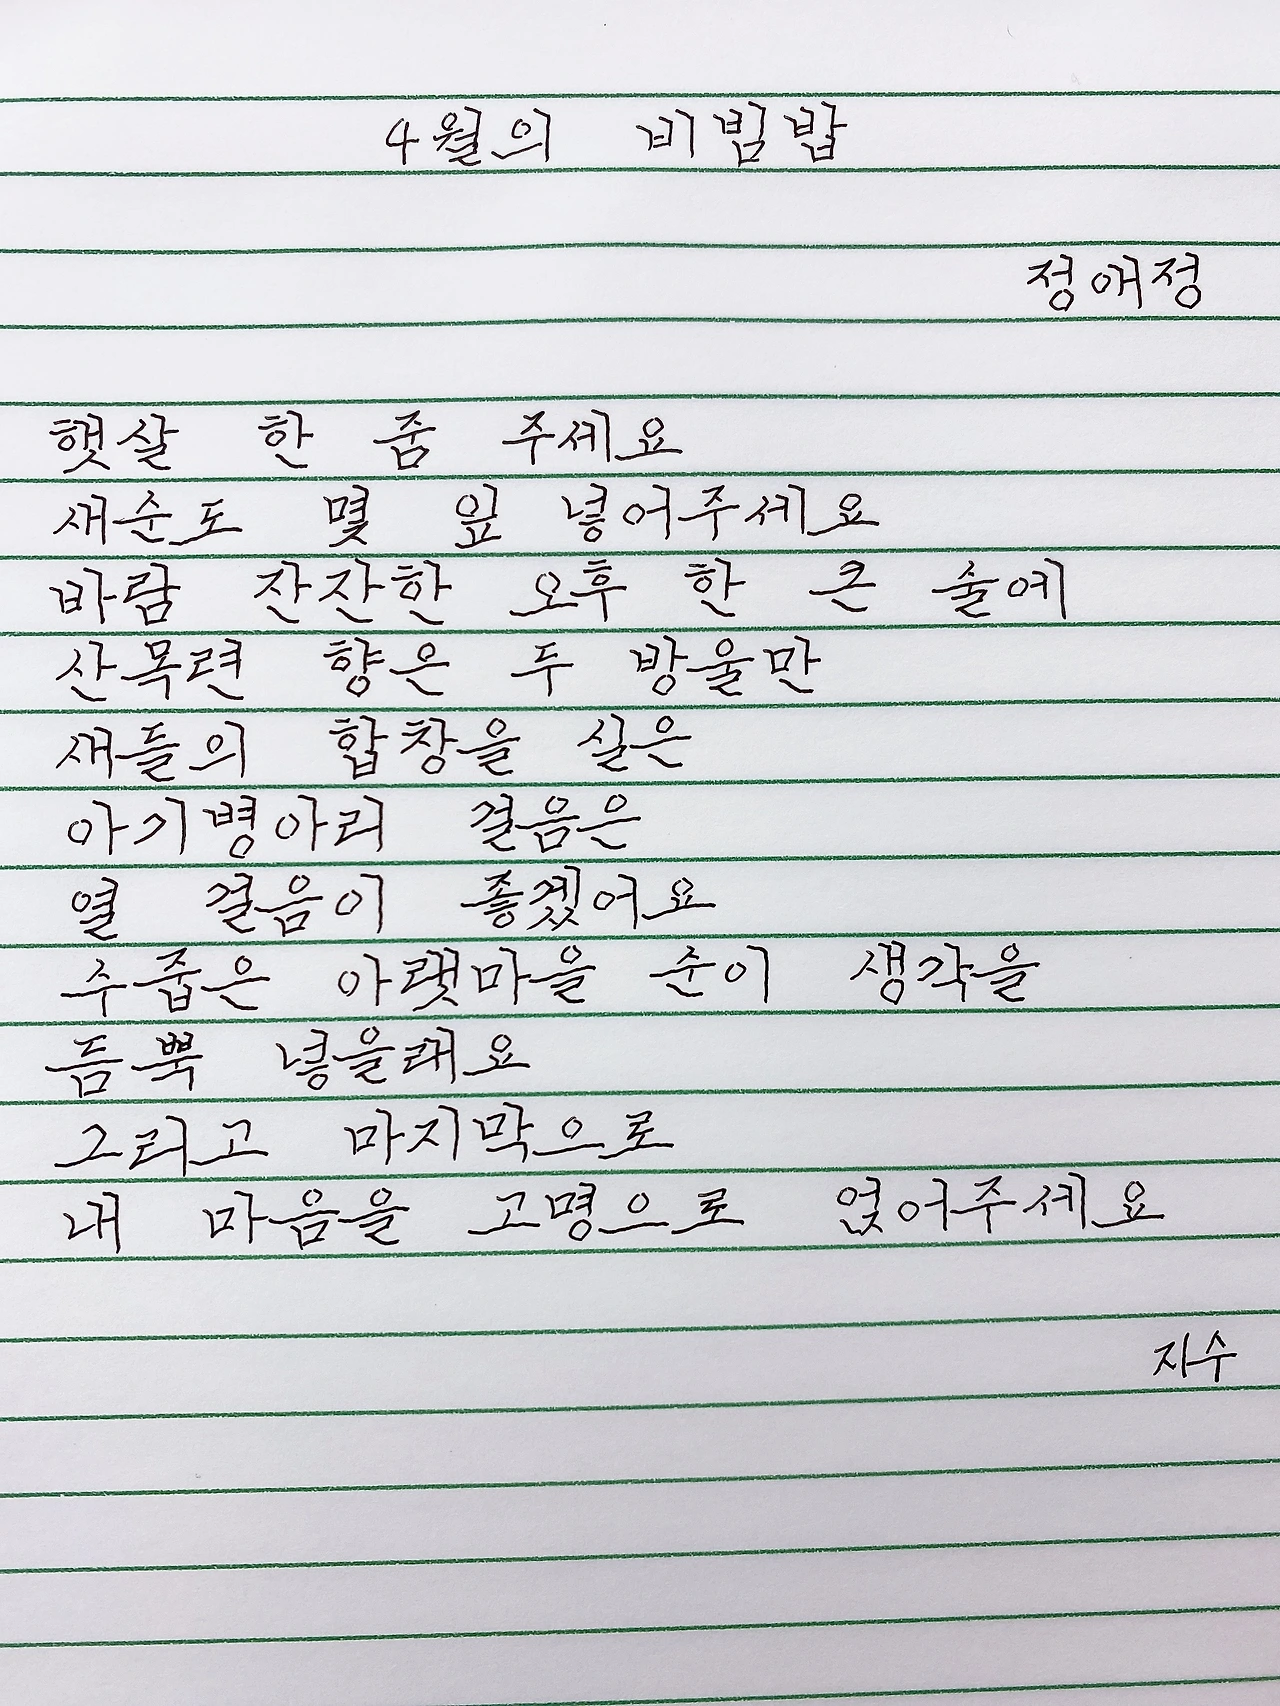 4월의 비빔밥
정애정
햇살 한 줌 주세요
새순도 몇 잎 넣어주세요
바람 잔잔한 오후 한 큰 술에
산목련 향은 두 방울만
새들의 합창을 실은
아기병아리 걸음은
열 걸음이 좋겠어요
수줍은 아랫마을 순이 생각을
듬뿍 넣을래요
그리고 마지막으로
내 마음을 고명으로 얹어주세요
지수